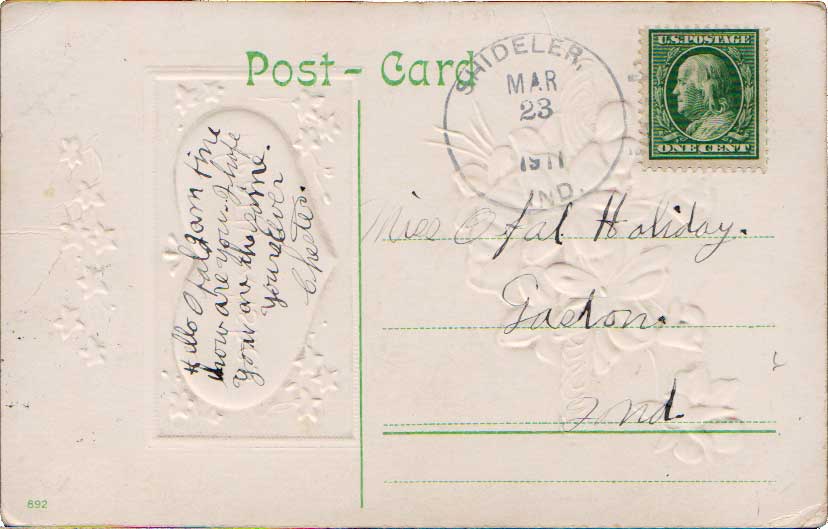 Post - Card
SHIDELER,
MAR
23
1911
IND.
U.S. POSTAGE
ONE CENT
Hello Ofal I am fine
how are you. I hope
you are the same.
Yours ever
Chester.
Miss Ofal Holiday.
Gaston.
Ind.
892